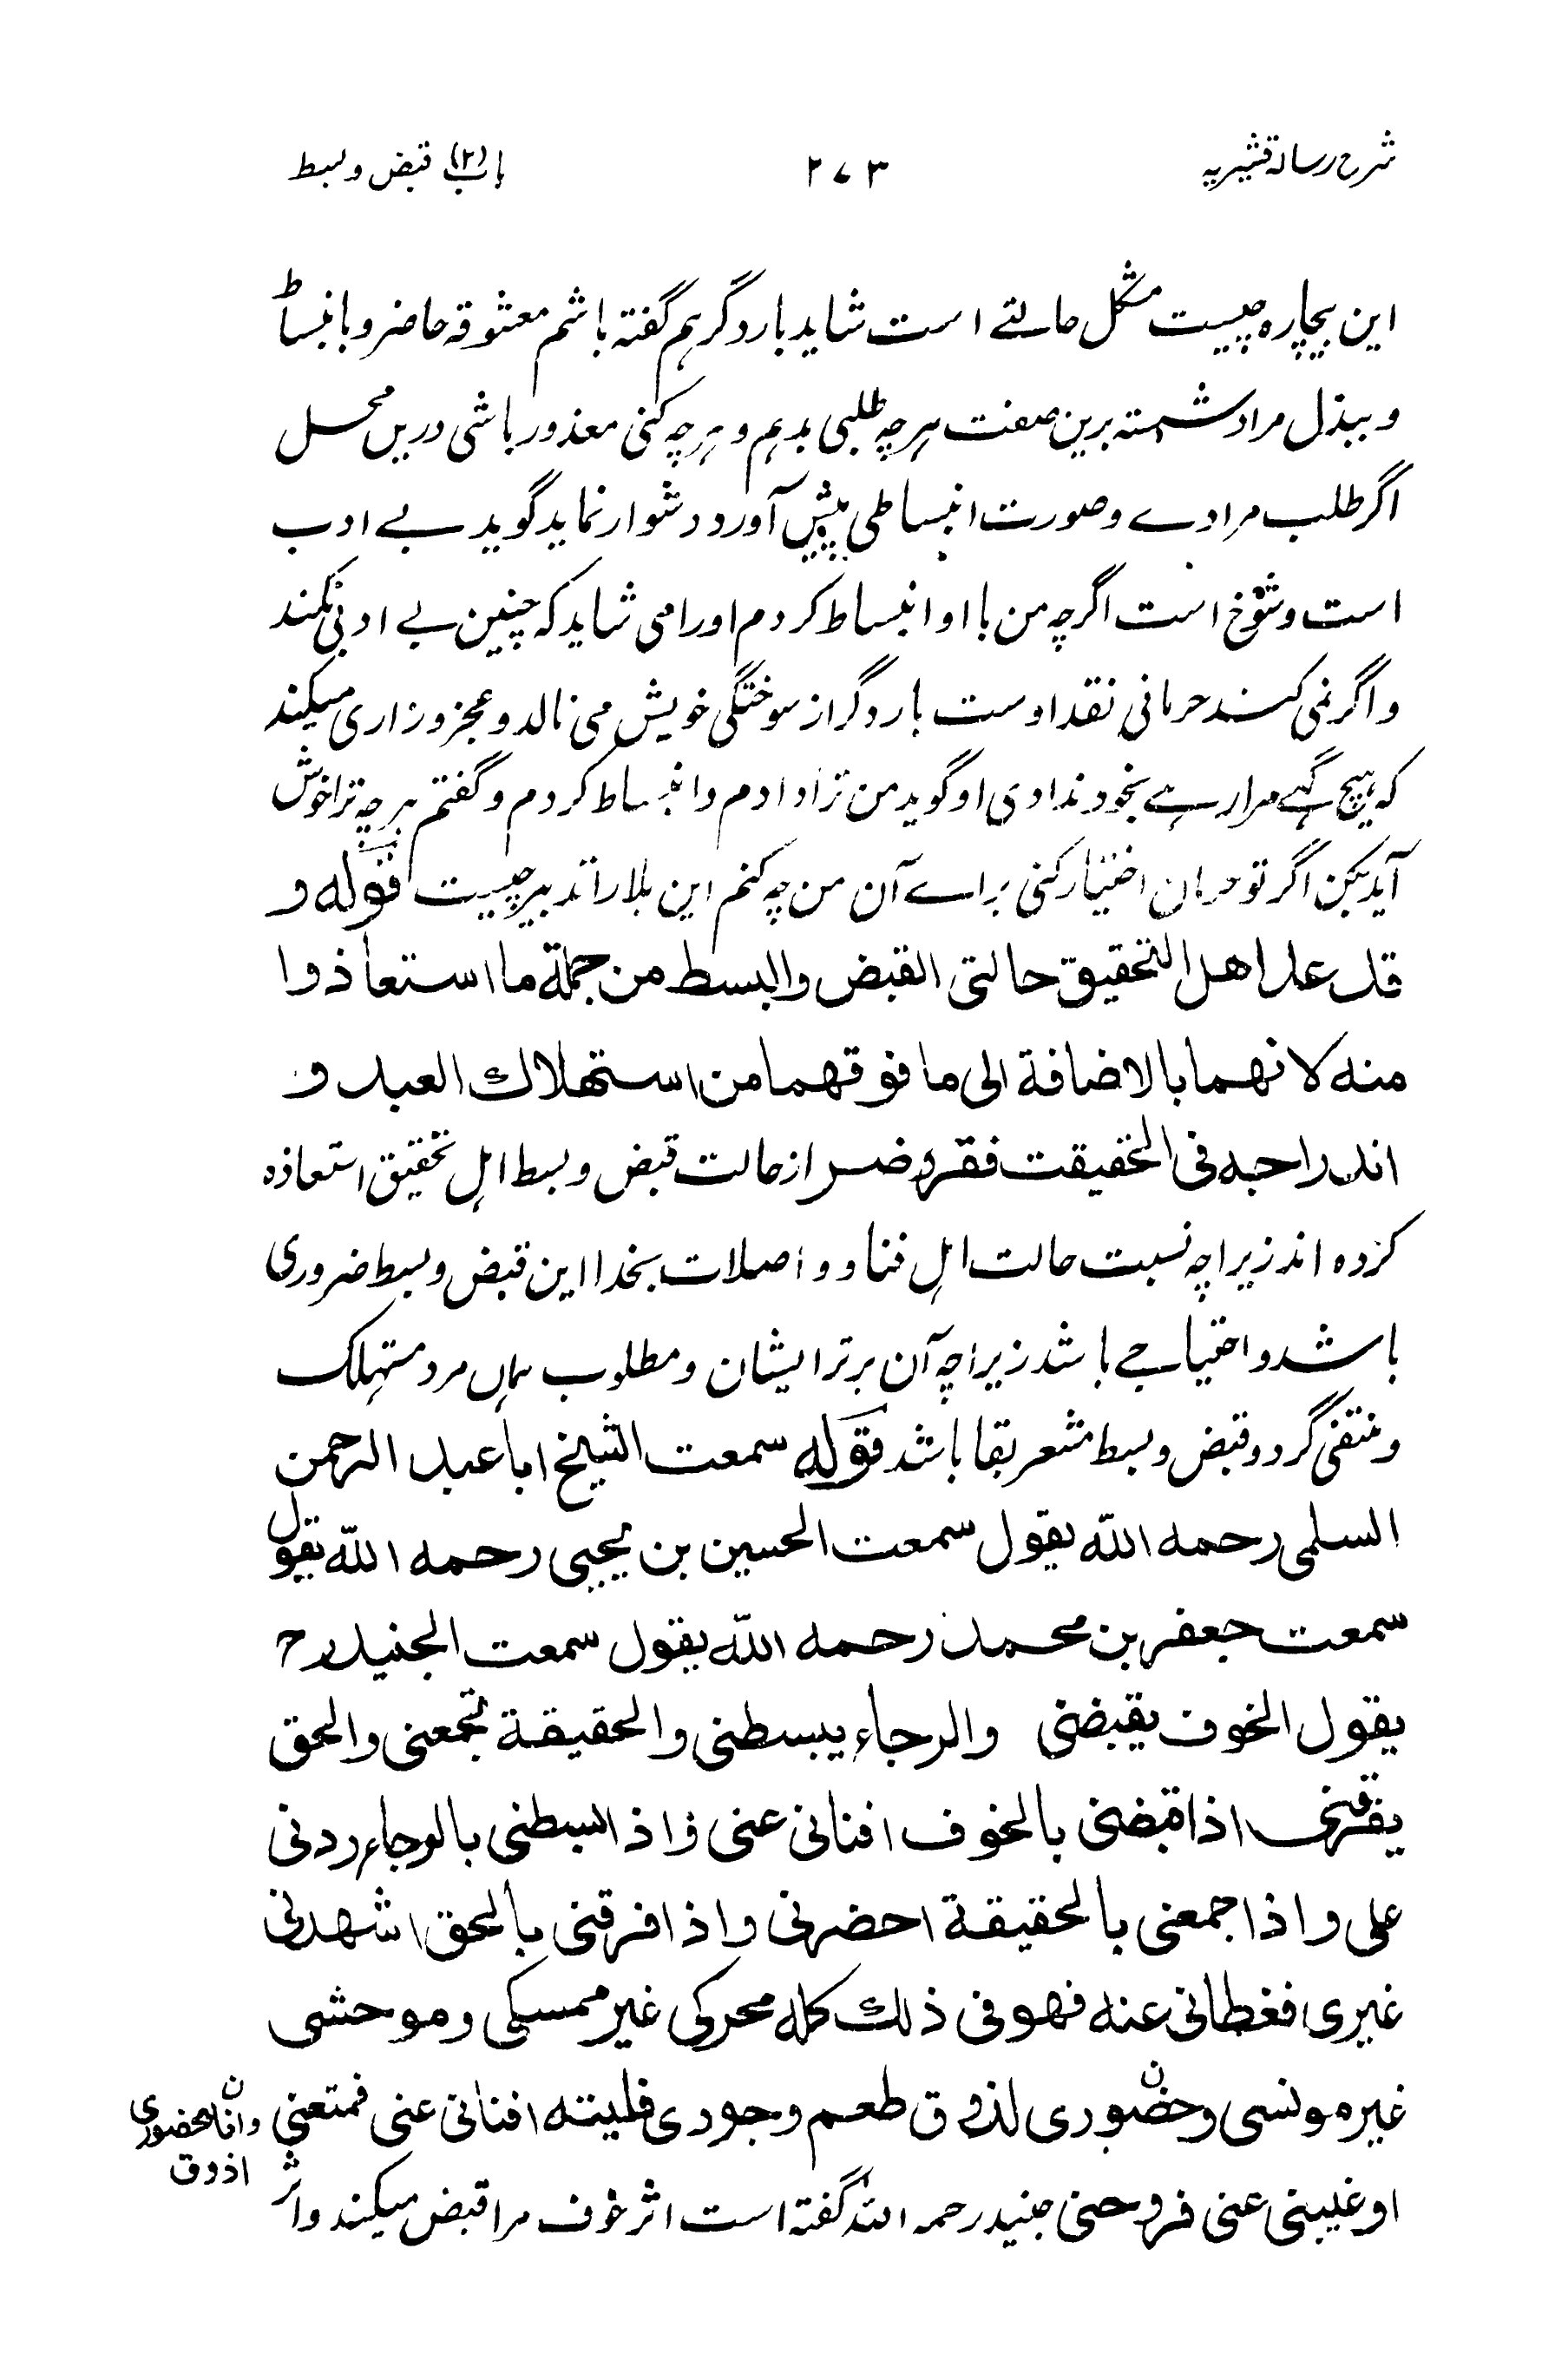 شرح رسالۃ قشیریہ ۲۷۳ باب (۲) قبض و بسط
این بیچارہ چیست مشکل حالتے است شاید بار دگر ہم گفتہ باشم معشوقہ حاضر و بانبساط
و ببذل مراد نشستہ برین صفت ہرچہ طلبی بدہم و ہرچہ کنی معذور باشی دریں محل
اگر طلب مرادے و صورت انبساطی پیش آورد دشوار نماید گوید بے ادب
است و شوخ است اگرچہ من با او انبساط کردم او را می شاید کہ چنین بے ادبی نکند
و اگر نمی کند حرمانی نقد اوست بار دگر از سوختگی خویش می نالد و عجز و زاری میکند
کہ ہیچ گہے مرا رہے بخود ندادی او گوید من ترا دادم و انبساط کردم و گفتم ہرچہ ترا خوش
آید بکن اگر تو حرمان اختیار کنی براے آن من چہ کنم این بلا را تدبیر چیست قوله و
قد عد اهل التحقیق حالتی القبض والبسط من جملة ما استعاذوا
منه لانهما بالاضافة الی ما فوقهما من استهلاك العبد و
اندراجه فی الحقیقت فقر وضر از حالت قبض و بسط اہل تحقیق استعاذہ
کردہ اند زیراچہ نسبت حالت اہل فنا و واصلات بخدا این قبض و بسط ضروری
باشد و احتیاجے باشد زیراچہ آن برتر ایشان و مطلوب ہماں مرد مستہلک
و منتفی گردد و قبض و بسط مشعر بقا باشد قوله سمعت الشیخ ابا عبد الرحمن
السلمی رحمه اللّٰه یقول سمعت الحسین بن یحیی رحمه اللّٰه یقول
سمعت جعفر بن محمد رحمه اللّٰه یقول سمعت الجنید رح
یقول الخوف یقبضنی والرجاء یبسطنی والحقیقة تجمعنی والحق
یفرقنی اذا قبضنی بالخوف افنانی عنی واذا بسطنی بالرجاء ردنی
علی واذا جمعنی بالحقیقة احضرنی واذا فرقنی بالحق اشهدنی
غیری فغطانی عنه فهو فی ذلك کله محرکی غیر ممسکی وموحشی
غیر مونسی وحضوری لذوق طعم وجودی فلیته افنانی عنی فمتعنی
ن وانا بحضوری
اذوق
او غیبنی عنی فروحنی جنید رحمہ اللہ گفتہ است اثر خوف مرا قبض میکند و اثر